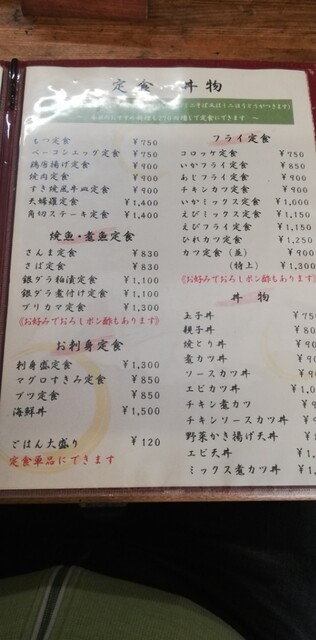 定食・丼物
もつ定食 ¥750
ベーコンエッグ定食 ¥750
鶏唐揚げ定食 ¥900
焼肉定食 ¥900
すき焼風牛皿定食 ¥900
天婦羅定食 ¥1,400
角切ステーキ定食 ¥1,400
焼魚・煮魚定食
さんま定食 ¥830
さば定食 ¥830
銀ダラ粕漬定食 ¥1,100
銀ダラ煮付け定食 ¥1,100
ブリカマ定食 ¥1,300
《お好みでおろしポン酢もあります》
お刺身定食
刺身盛定食 ¥1,300
マグロすきみ定食 ¥850
ブツ定食 ¥850
海鮮丼 ¥1,500
ごはん大盛り ¥120
定食単品にできます
フライ定食
コロッケ定食 ¥750
いかフライ定食 ¥850
あじフライ定食 ¥900
チキンカツ定食 ¥900
いかミックス定食 ¥1,000
えびミックス定食 ¥1,150
えびフライ定食 ¥1,150
ひれカツ定食 ¥1,250
カツ定食(並) ¥900
(特上) ¥1,300
《お好みでおろしポン酢もあります》
丼物
玉子丼 ¥75
親子丼 ¥8
焼とり丼 ¥9
煮カツ丼 ¥9
ソースカツ丼 ¥9
エビカツ丼 ¥1,0
チキン煮カツ ¥9
チキンソースカツ丼 ¥9
野菜かき揚げ天丼 ¥8
エビ天丼 ¥1
ミックス煮カツ丼 ¥1,